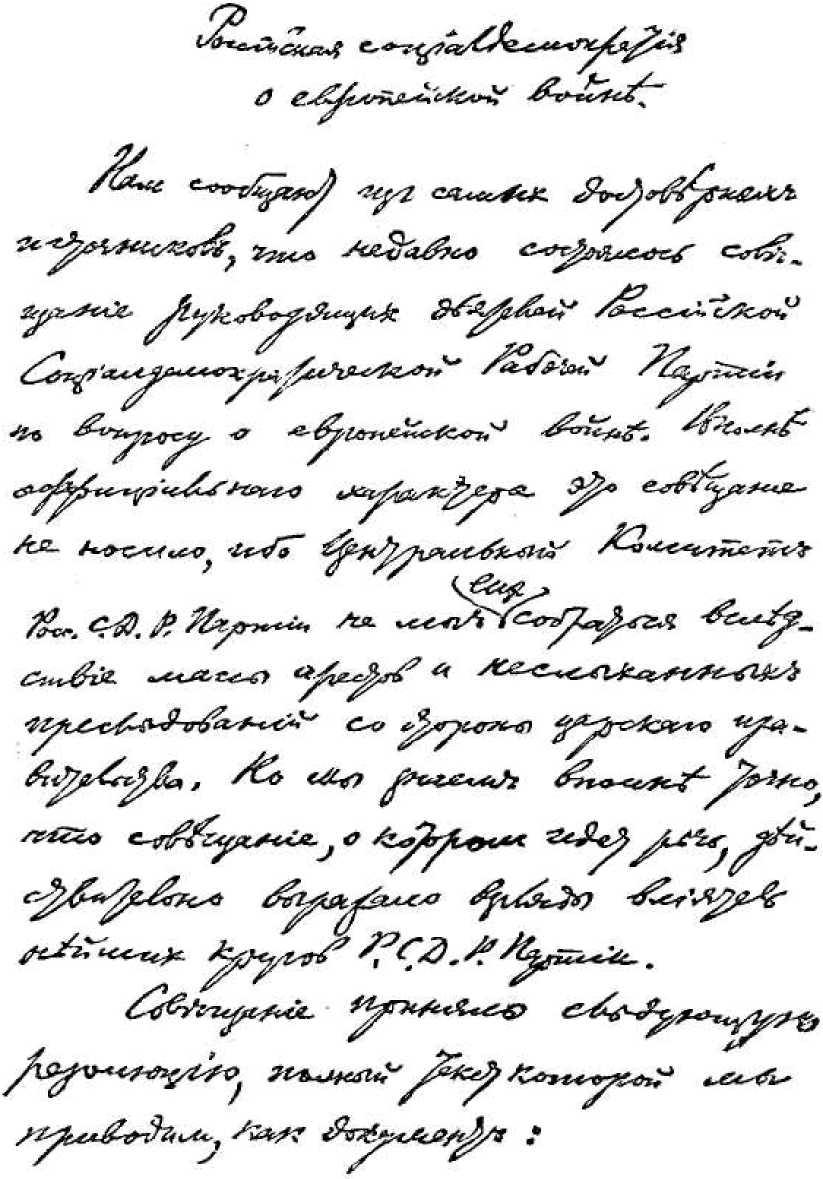 Россiйская соцiалдемократiя
о европейской войнѣ.
Нам сообщают из самых достовѣрнѣйших
источников, что недавно состоялось совѣ-
щанiе руководящих дѣятелей Россiйской
Соцiалдемократической Рабочей Партiи
по вопросу о европейской войнѣ. Вполнѣ
оффицiальнаго характера это совѣщание
не носило, ибо Центральный Комитетъ
Рос. С.Д.Р. Партiи не могъ еще собраться вслѣд-
ствiе массы арестов и неслыханныхъ
преслѣдованiй со стороны царскаго пра-
вительства. Но мы знаемъ вполнѣ точно,
что совѣщанiе, о котором идет рѣчь, дѣй-
ствительно выражало взгляды влiятель
нѣйших кругов Р.С.Д.Р. Партiи.
Совѣщанiе приняло слѣдующую
резолюцiю, полный текст которой мы
приводим, как документъ: